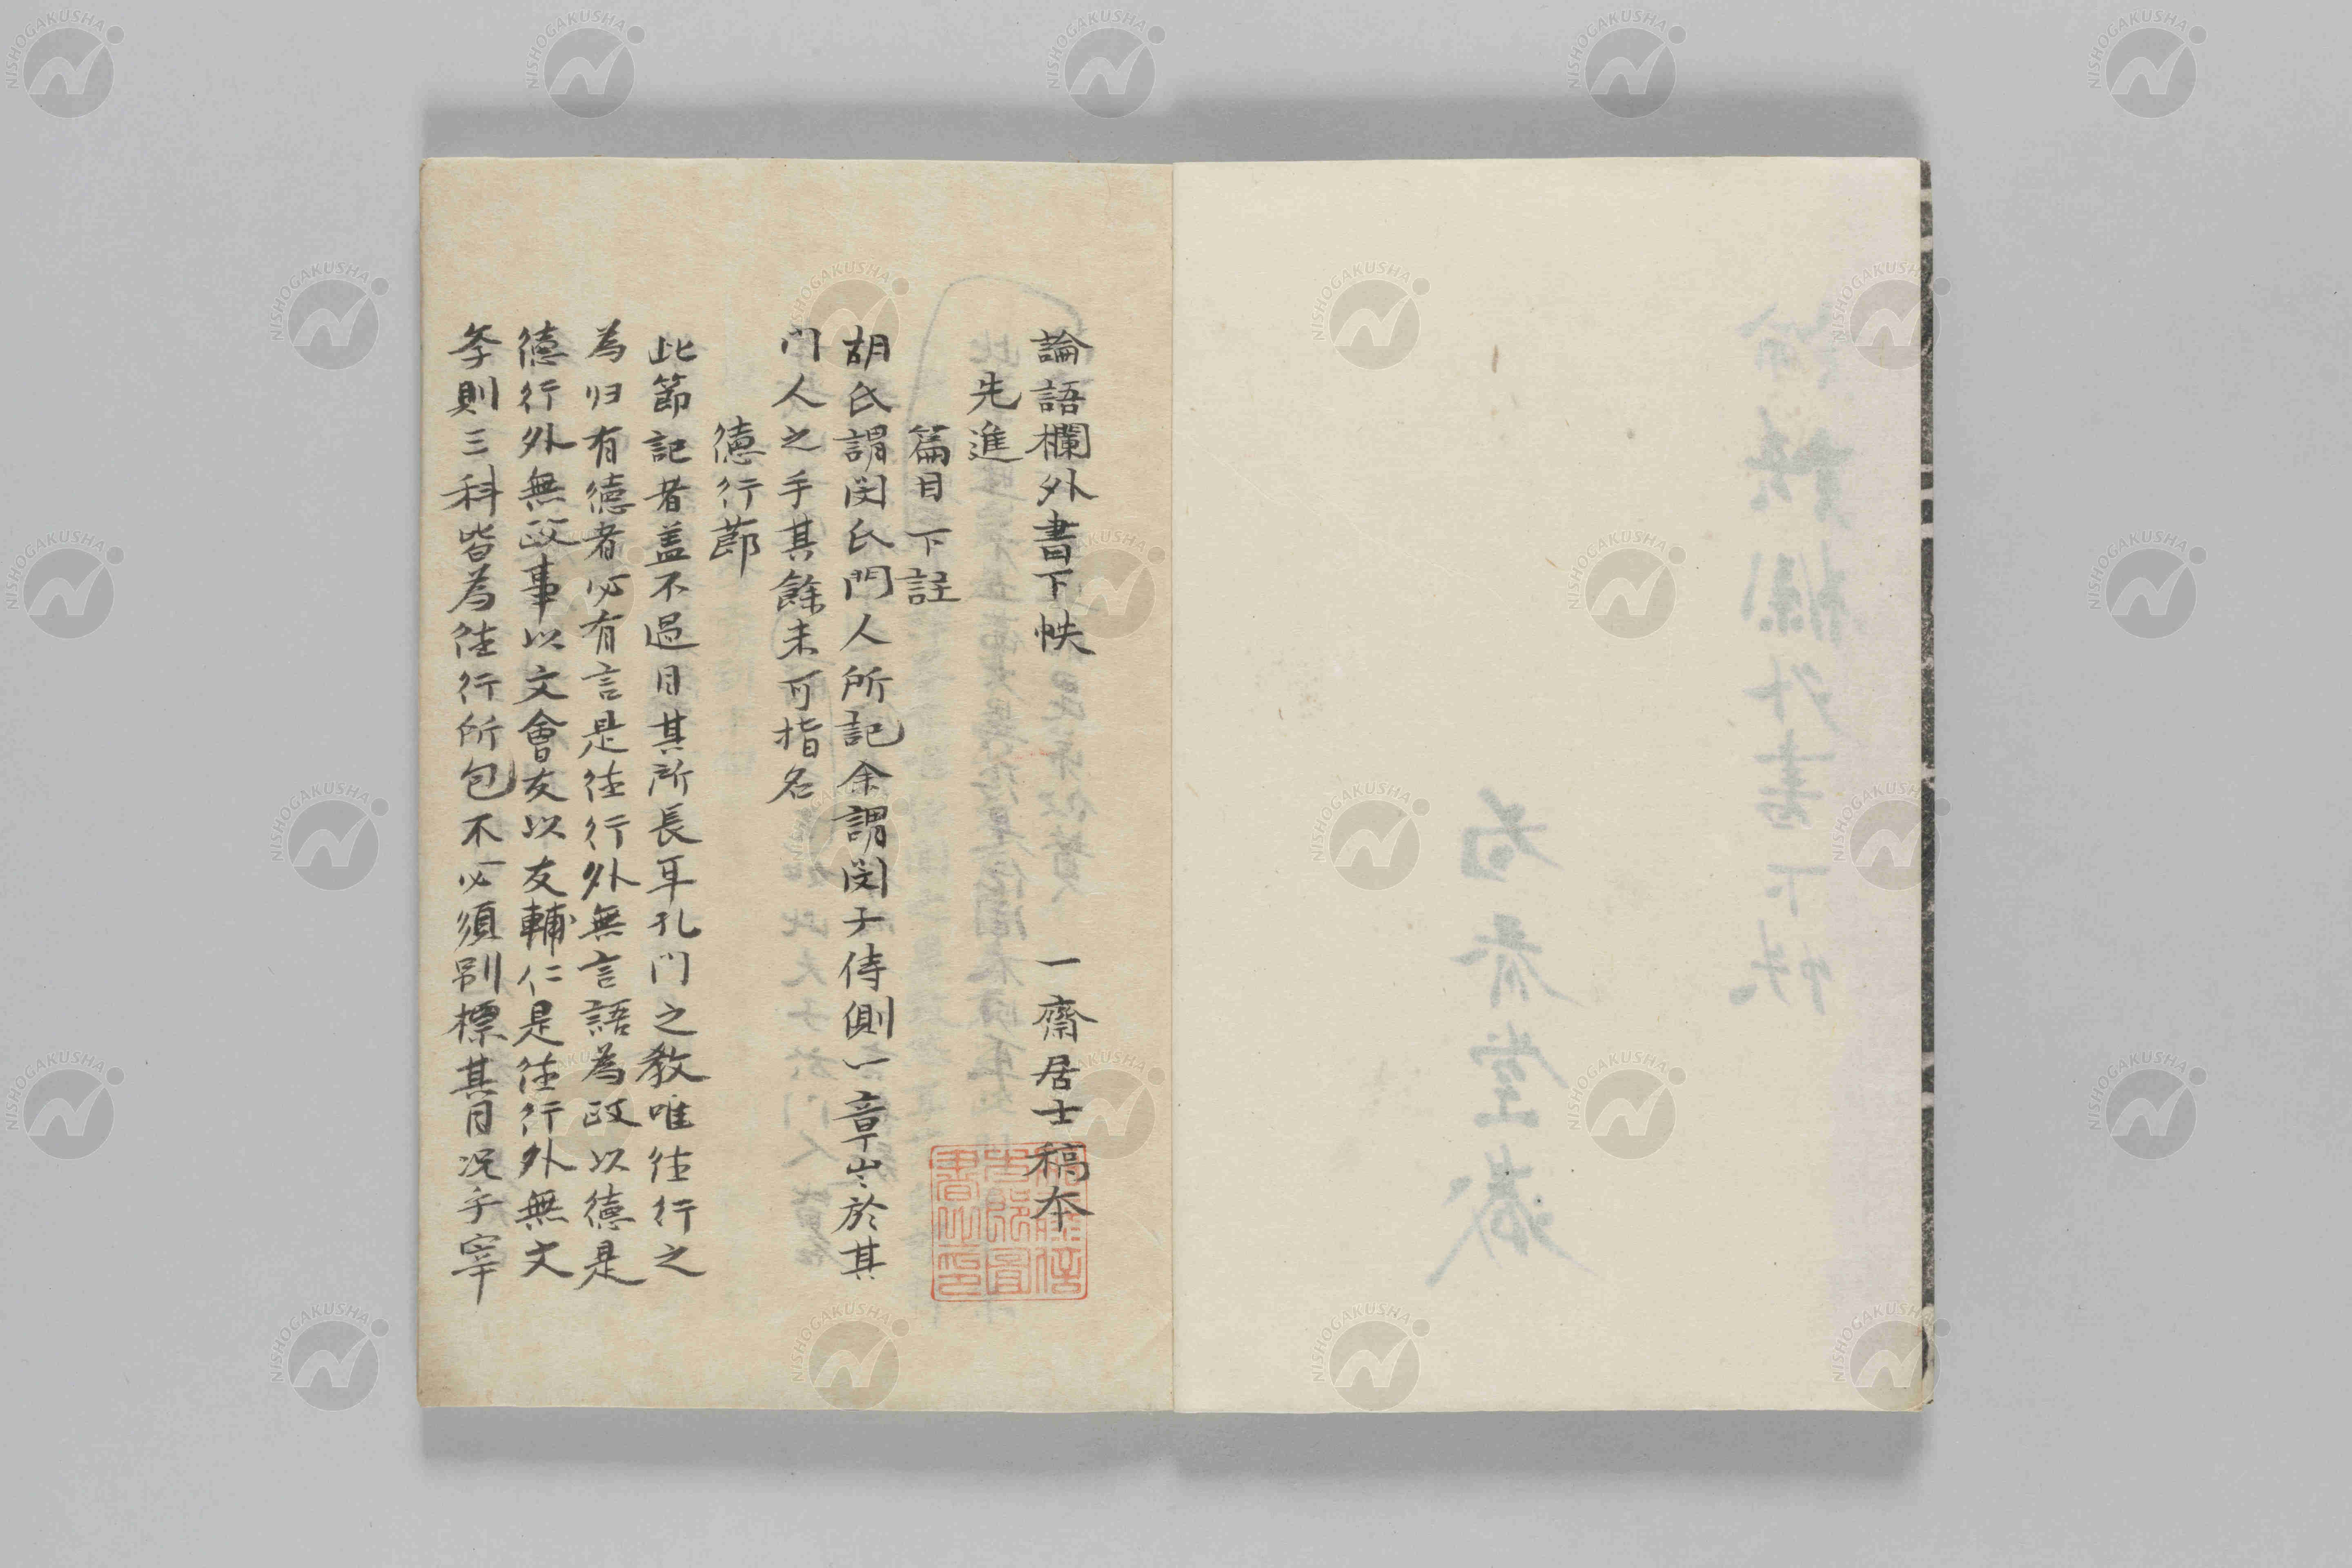 論語欄外書下帙　　　一齋居士稿本
先進
篇目下註
胡氏謂閔氏門人所記余謂閔子侍側一章出於其
门人之手其餘未可指名
徳行節
此節記者盖不過目其所長耳孔门之教唯徳行之
為归有徳者必有言是徳行外無言語為政以徳是
徳行外無政事以文會友以友輔仁是徳行外無文
斈則三科皆為徳行所包不必須別標其目况乎宰
NISHOGAKUSHA